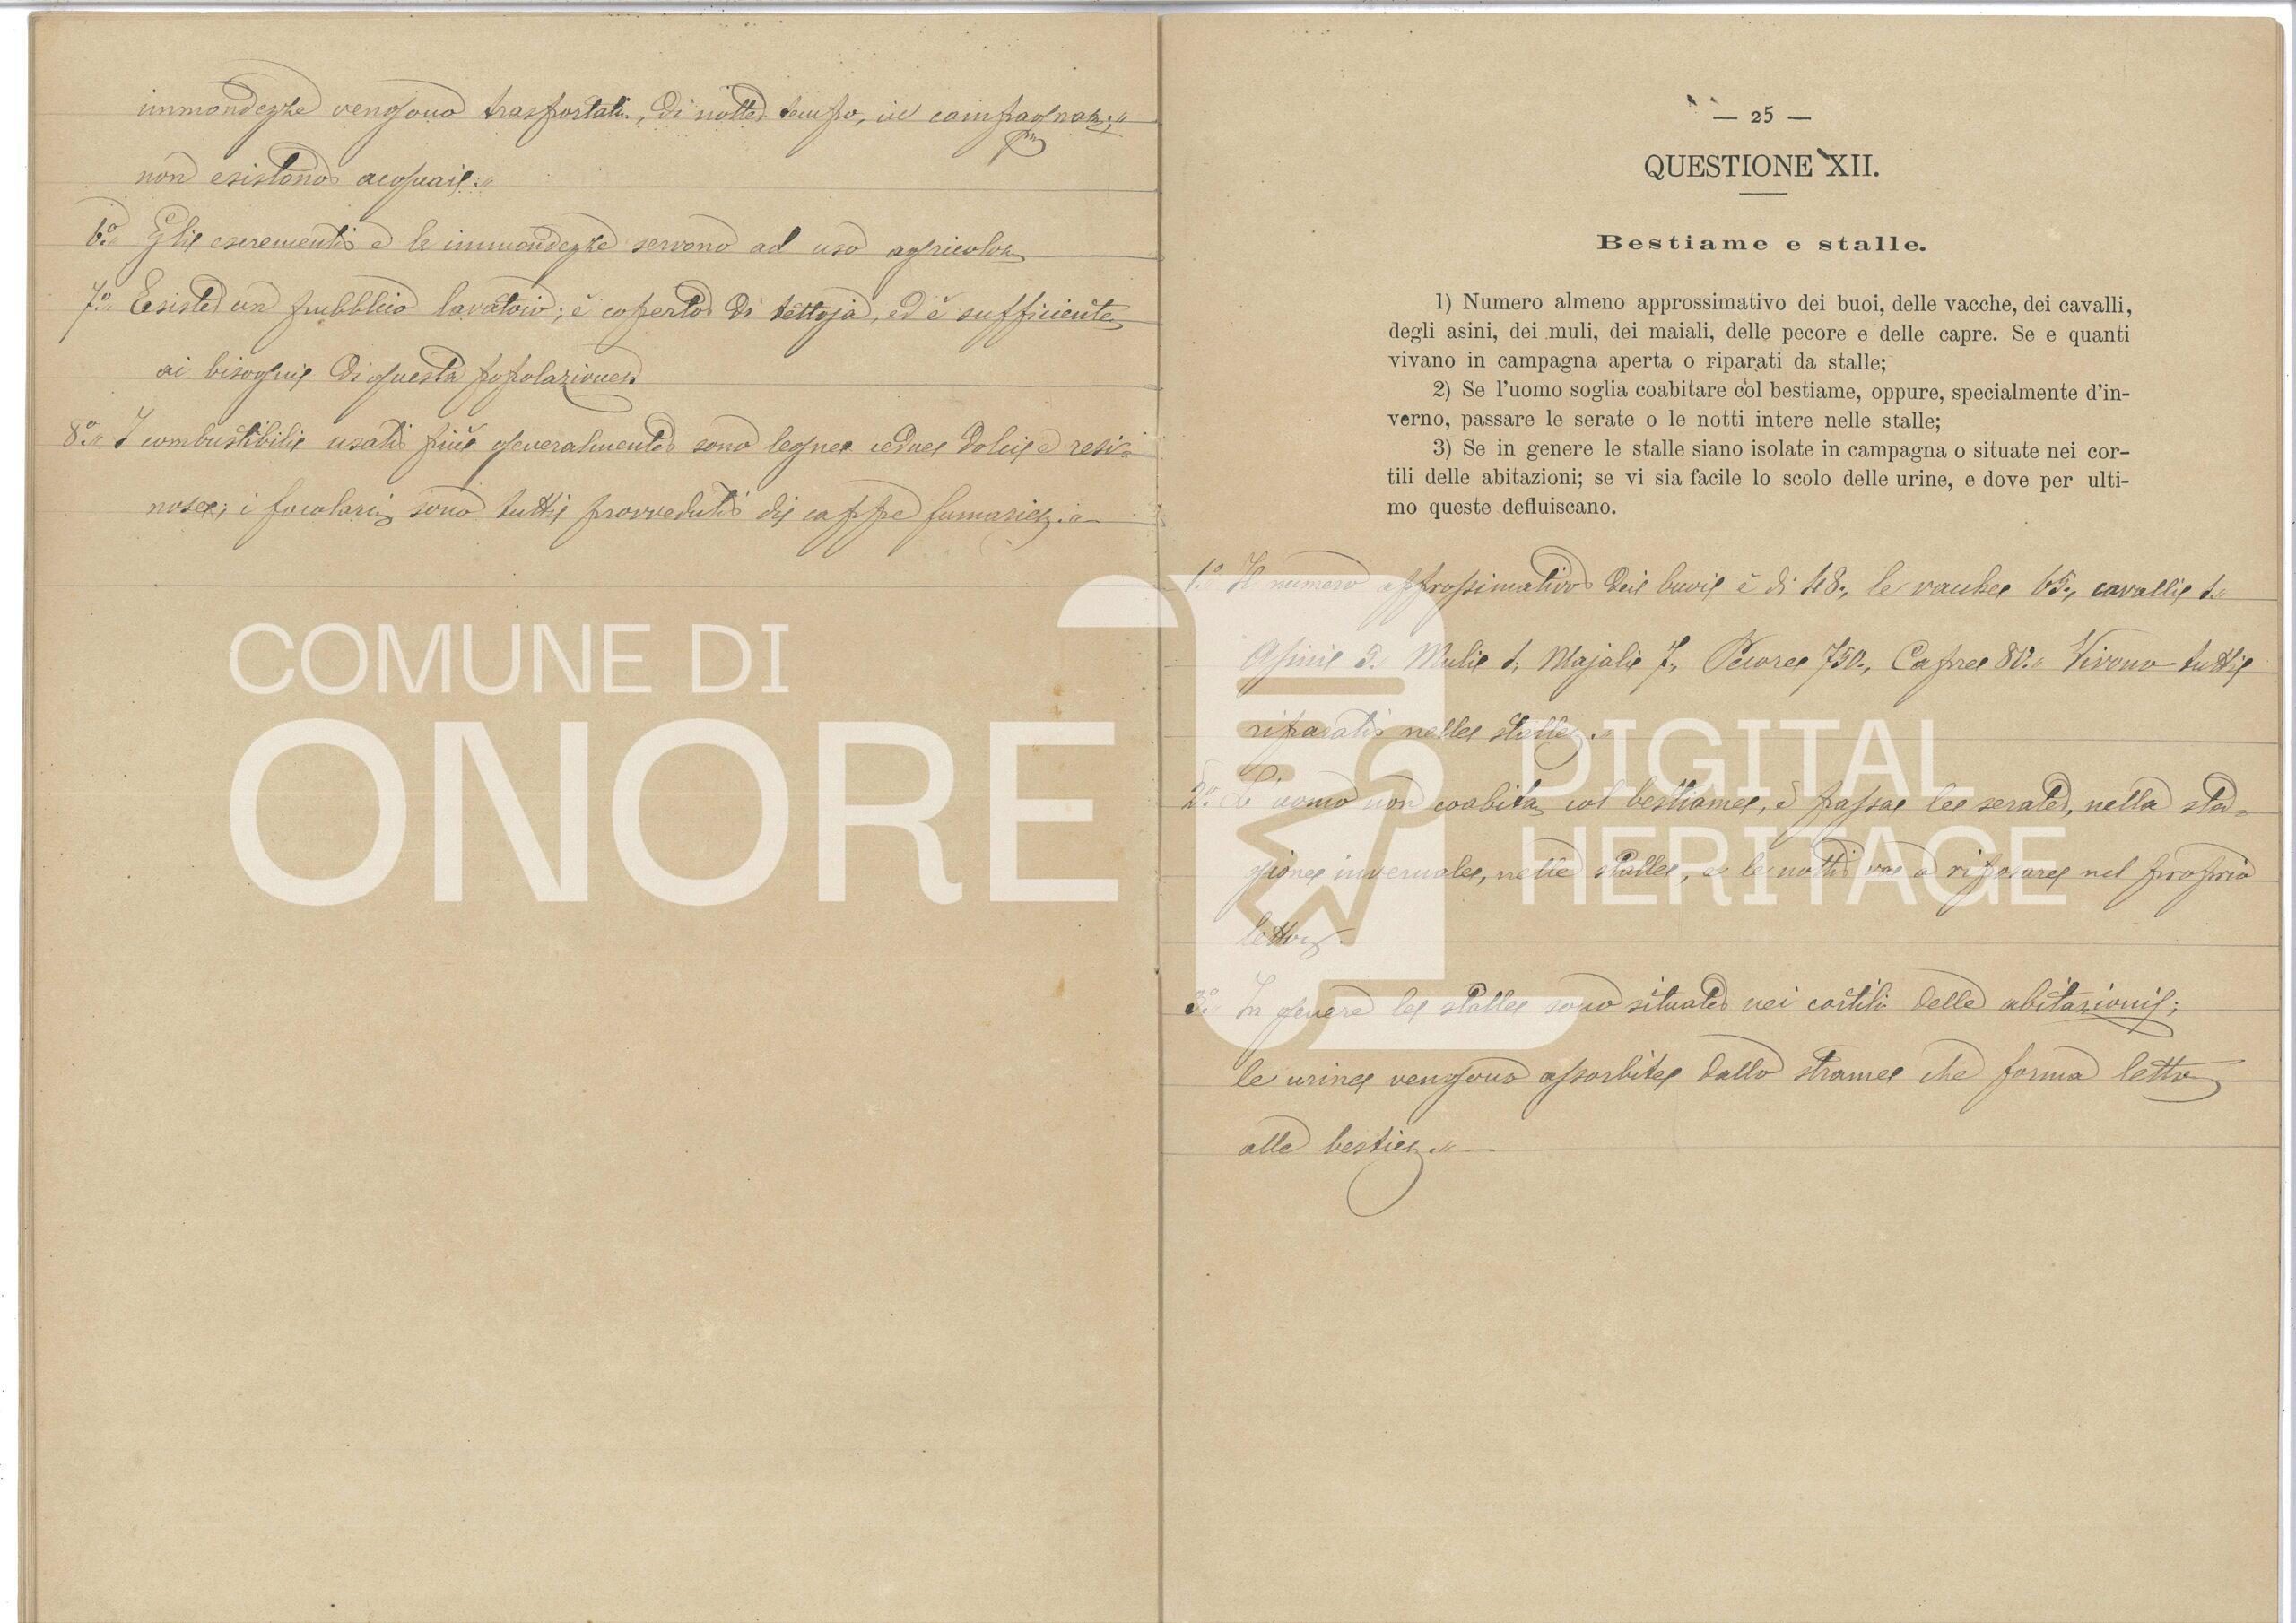 immondezze vengono trasportati, di notte tempo, in campagna;
non esistono acquai.
6.° Gli escrementi e le immondezze servono ad uso agricolo
7.° Esiste un pubblico lavatoio; è coperto di tettoja, ed è sufficiente
ai bisogni di questa popolazione
8.° I combustibili usati più generalmente sono legne cedue dolci e resi-
nose; i focolari sono tutti provveduti di cappe fumarie.
— 25 —
QUESTIONE XII.
Bestiame e stalle.
1) Numero almeno approssimativo dei buoi, delle vacche, dei cavalli,
degli asini, dei muli, dei maiali, delle pecore e delle capre. Se e quanti
vivano in campagna aperta o riparati da stalle;
2) Se l'uomo soglia coabitare col bestiame, oppure, specialmente d'in-
verno, passare le serate o le notti intere nelle stalle;
3) Se in genere le stalle siano isolate in campagna o situate nei cor-
tili delle abitazioni; se vi sia facile lo scolo delle urine, e dove per ulti-
mo queste defluiscano.
1.° Il numero approssimativo dei buoi è di 48, le vacche 65, cavalli 1.
Asini 5. Muli 1, Majali 7, Pecore 750, Capre 80. Vivono tutti
riparati nelle stalle.
2.° L'uomo non coabita col bestiame, e passa le serate, nella sta-
gione invernale, nelle stalle, e le notti va a riposare nel proprio
letto.
3.° In genere le stalle sono situate nei cortili delle abitazioni;
le urine vengono assorbite dallo strame che forma letto
alle bestie.
COMUNE DI
ONORE
DIGITAL
HERITAGE